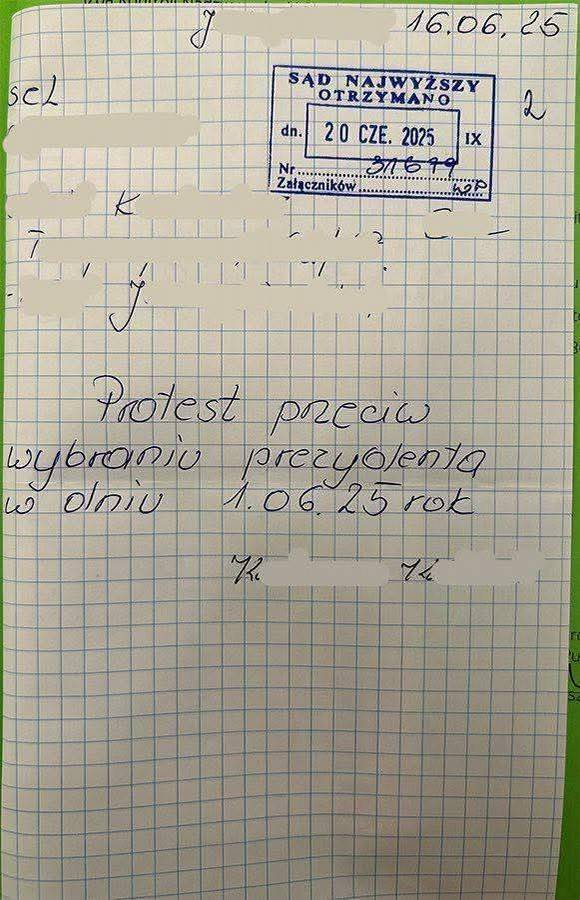 J 16.06.25
SĄD NAJWYŻSZY
OTRZYMANO
dn. 20 CZE. 2025 IX
Nr
Załączników
2
K
J
Protest przeciw
wybraniu prezydenta
w dniu 1.06.25 rok